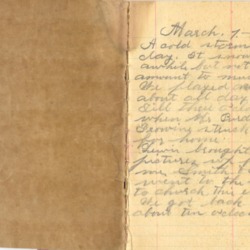 March. 7-
A cold storm
day. It snow
awhile but not
amount to mu
We played
about all day
Till
when Mr. Bird
for home.
Lewis brought
pictures up f
me Smith f
went to the
to church thi
We got back
about ten ocloc